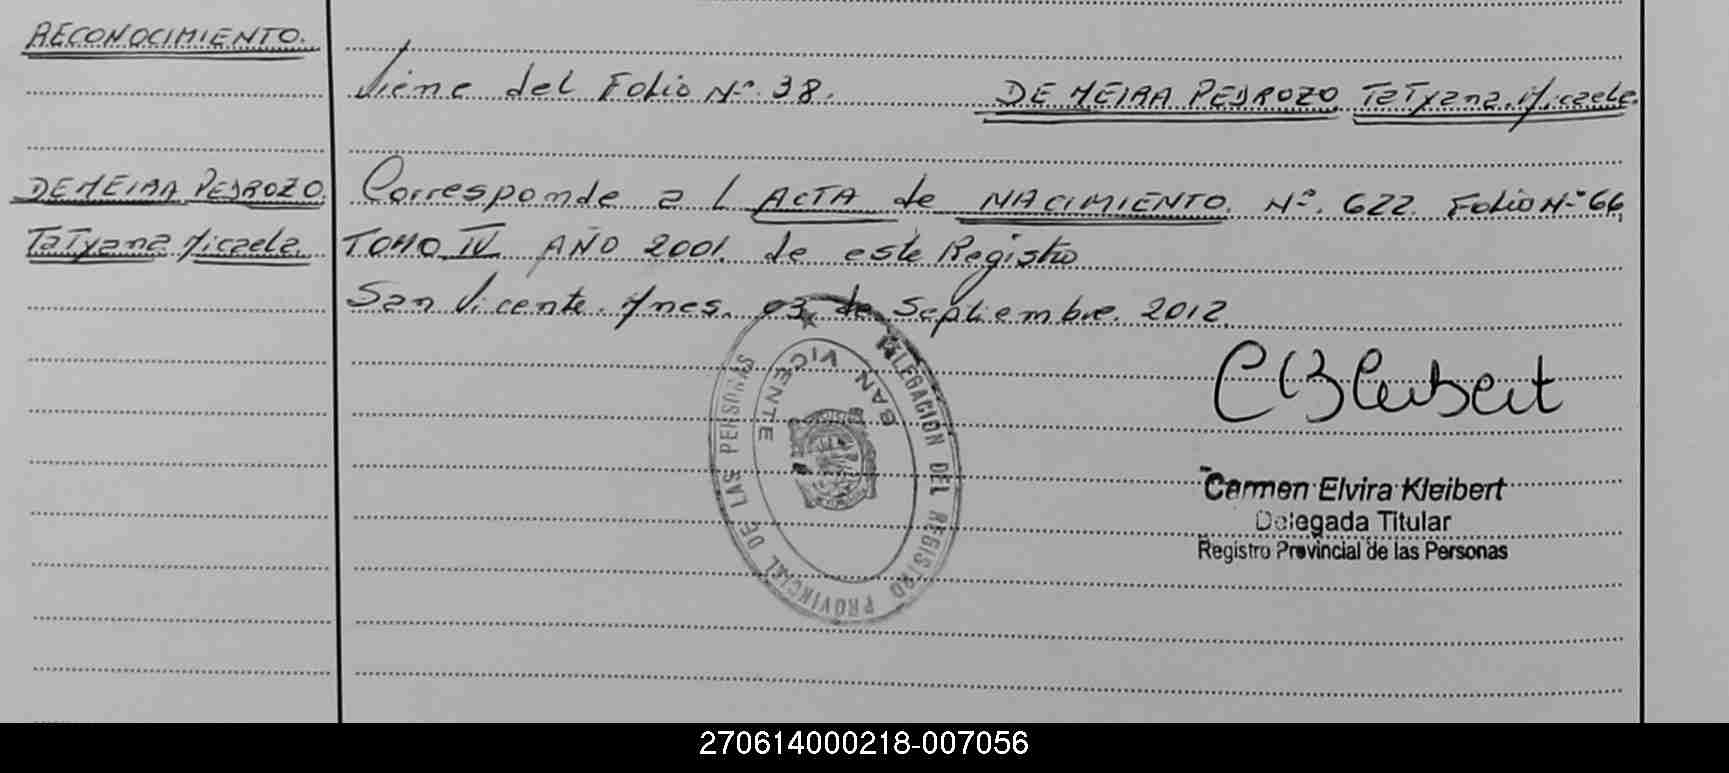 RECONOCIMIENTO.
Viene del Folio Nº 38. DE MEIRA PEDROZO Tatyana Micaela.
DE MEIRA PEDROZO
Tatyana Micaela.
Corresponde al ACTA de NACIMIENTO. Nº. 622. Folio Nº 66
TOMO IV AÑO 2001. de este Registro
San Vicente. Mnes. 03 de Septiembre. 2012.
DELEGACION DEL REGISTRO PROVINCIAL DE LAS PERSONAS
SAN VICENTE
CBKleibert
Carmen Elvira Kleibert
Delegada Titular
Registro Provincial de las Personas
270614000218-007056